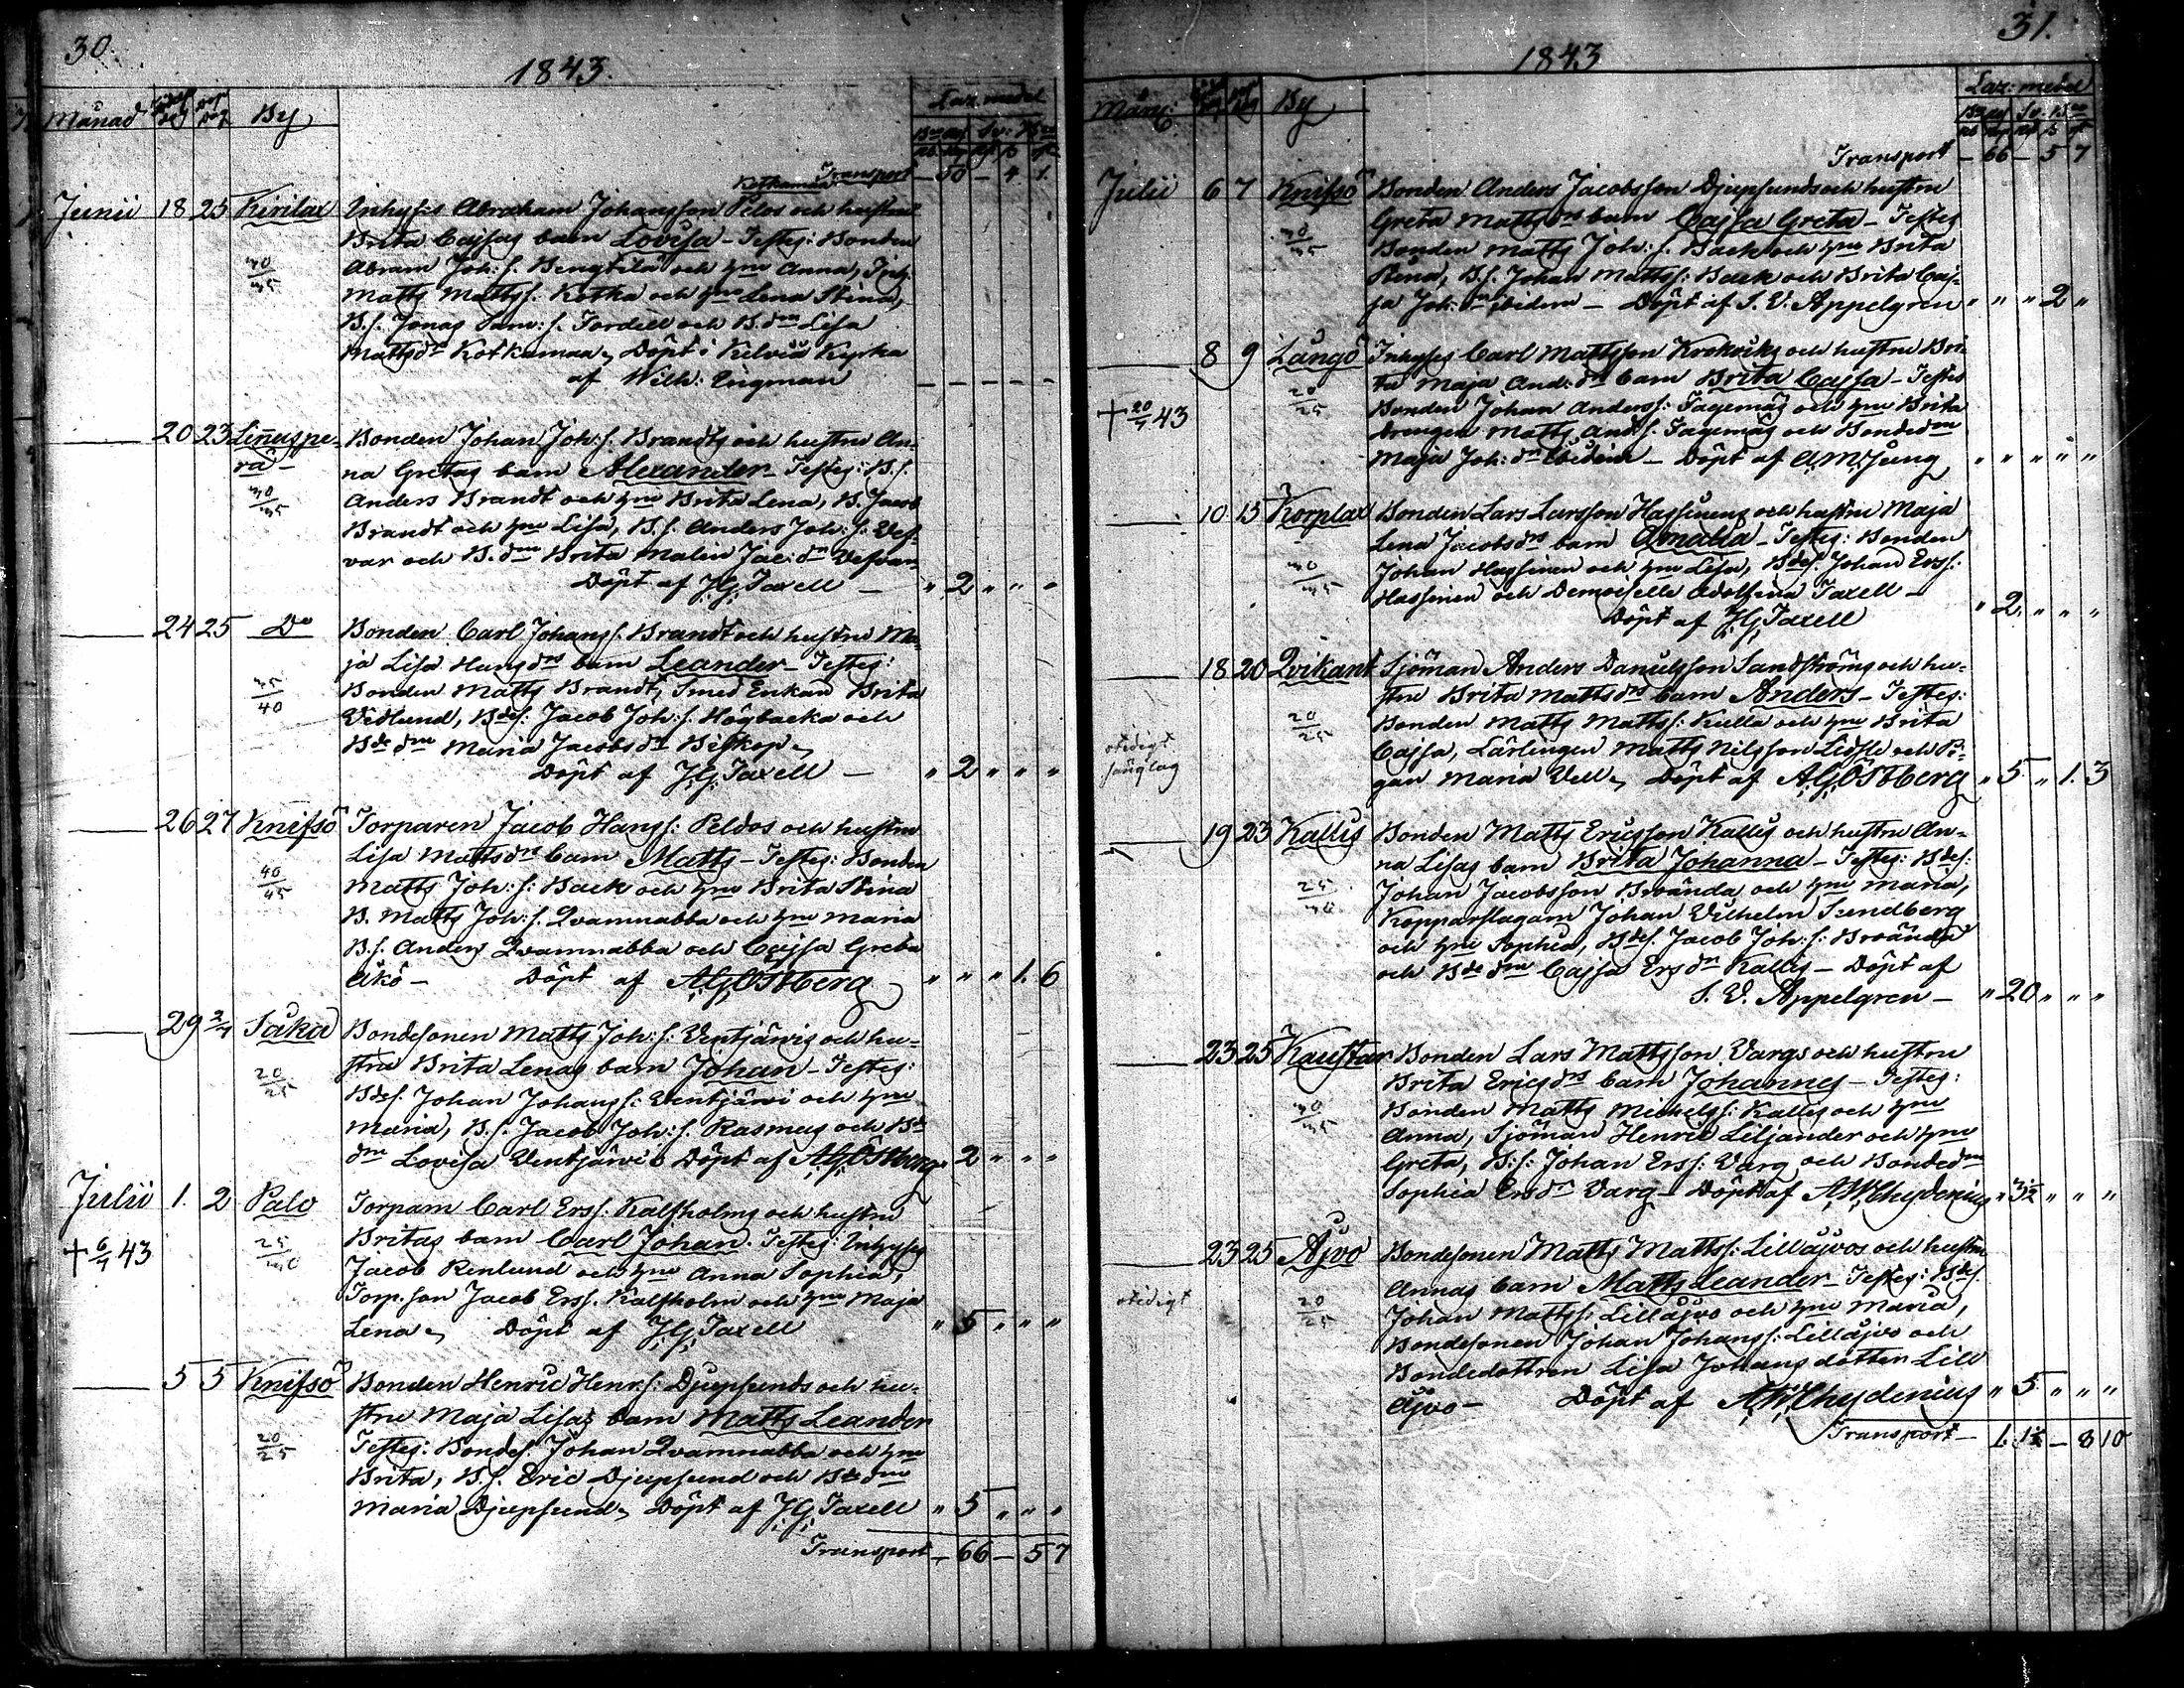 30.
1843.
Månad Födelsedag Döpedag By Laz. medel
Bco Ass. Sv. Bco
Transport — 50 — 4. 1.
Kotkamaa
Junii 18 25 Kirilax Inhyses Abraham Johansson Pelos och hustru
Brita Cajsas barn Lovisa – Testes: Bonden
30/35 Abram Joh: s. Bengtila och hm Anna, Inh.
Matts Mattss. Kotka och hm Lena Stina,
B.s. Jonas Sam: s. Tordell och B.dm Lisa
Mattsdr Kotkamaa, Döpt i Kelviå Kyrka
af Wilh: Engman — — — — —
20 23 Linnuspe- Bonden Johan Joh: s. Brandts och hustru An-
rä – na Gretas barn Alexander – Testes: B.s.
30/35 Anders Brandt och hm Brita Lena, B. Jacob
Brandt och hm Lisa, B.s. Anders Joh: s. Vef-
var och B.dm Brita Malin Jac: dr Vefvar,
Döpt af J.G. Taxell — " 2 " " "
24 25 Do Bonden Carl Johans s. Brandt och hustru Ma-
ja Lisa Hansdrs barn Leander – Testes:
35/40 Bonden Matts Brandt, Smed Enkan Brita
Vidlund, Bdes: Jacob Joh: s. Högbacka och
Bde dm Maria Jacobsdr Biskop,
Döpt af J.G. Taxell — " 2 " " "
26 27 Knifsö Torparen Jacob Hans s: Peldos och hustru
Lisa Mattsdrs barn Matts – Testes: Bonden
40/45 Matts Joh: s: Back och hm Brita Stina
B. Matts Joh: s. Qvamnabba och hm Maria
B.s. Anders Qvamnabba och Cajsa Greta
Åkö – Döpt af A.G. Östberg " " " 1. 6
29 2/7 Såka Bondesonen Matts Joh: s: Ventjärvis och hu-
stru Brita Lenas barn Johan – Testes:
20/25 Bdes. Johan Johans s: Ventjärvi och hm
Maria, B.s. Jacob Joh: s. Rasmus och Bde
dm Lovisa Ventjärvi Döpt af A.G. Östberg " 2 " " "
Julii 1. 2 Palo Torparn Carl Ers s. Kalfholms och hustru
+ 6/7 43 25/30 Britas barn Carl Johan. Testes: Inhyses
Jacob Renlund och hm Anna Sophia,
Torp. son Jacob Ers s. Kalfholm och hm Maja
Lena, Döpt af J.G. Taxell " 5 " " "
5 5 Knifsö Bonden Henric Henr. s: Djupsunds och hu-
stru Maja Lisas barn Matts Leander
20/25 Testes: Bondes. Johan Qvamnabba och hm
Brita, B.s. Eric Djupsund och Bde dm
Maria Djupsund, Döpt af J.G. Taxell " 5 " " "
Transport — 66 — 5 7
31.
1843
Mån: By Laz: medel
Bco Ass. Sv. Bco
Transport — 66 — 5 7
Julii 6 7 Knifsö Bonden Anders Jacobsson Djupsunds och hustru
Greta Mattsdrs barn Cajsa Greta – Testes
30/35 Bonden Matts Joh: s. Back och hm Brita
Stina, B.s. Johan Mattss: Back och Brita Caj-
sa Joh: dr ibidem – Döpt af S. V. Appelgren " " " 2 "
8 9 Långö Inhyses Carl Mattsson Krokviks och hustru Bri-
ta Maja And: drs barn Brita Cajsa – Testes
+ 20/7 43 20/25 Bonden Johan Anders s: Tagemäs och hm Brita
Drengen Matts And: s. Tagemäs och Bondedm
Maja Joh: dr ibidem – Döpt af A.M. Ljung " " " " "
10 15 Korplax Bonden Lars Larsson Hassinens och hustru Maja
Lena Jacobsdrs barn Amalia – Testes: Bonden
30/35 Johan Hassinen och hm Lisa, Bdes. Johan Ers s:
Hassinen och Demoiselle Adolfina Taxell –
Döpt af J.G. Taxell " 2. " " "
18 20 Qvikant Sjöman Anders Danielsson Sandströms och hu-
stru Brita Mattsdrs barn Anders – Testes:
20/25 Bonden Matts Mattss: Kulla och hm Brita
otidigt sänglag Cajsa, Lärlingen Matts Nilsson Lidsle och Pi-
gan Maria Vell, Döpt af A.G. Östberg " 5 " 1. 3
19 23 Kallis Bonden Matts Ericsson Kallis och hustru An-
na Lisas barn Brita Johanna – Testes: Bdes:
25/30 Johan Jacobsson Brvända och hm Maria,
Kopparslagarn Johan Vilhelm Sundberg
och hm Sophia, Bdes. Jacob Joh: s: Brvända
och Bde dm Cajsa Ersdr Kallis – Döpt af
S. V. Appelgren – " 20 " " "
23 25 Kaustar Bonden Lars Mattsson Vargs och hustru
Brita Ericsdrs barn Johannes – Testes:
30/35 Bonden Matts Mickels s: Kallis och hm
Anna, Sjöman Henric Liljander och hm
Greta, B:s: Johan Ers s: Varg och Bondedm
Sophia Ersdr Varg – Döpt af A.W. Chydenius " 3½ " " "
23 25 Åjvo Bondesonen Matts Mattss: Lillåjvos och hustru
Annas barn Matts Leander – Testes: Bdes.
otidigt 20/25 Johan Mattss: Lillåjvo och hm Maria,
Bondesonen Johan Johans s: Lillåjvo och
Bondedottren Lisa Johans dotter Lill
Åjvo – Döpt af A.W. Chydenius " 5 " " "
Transport – 1. 1½ — 8 10